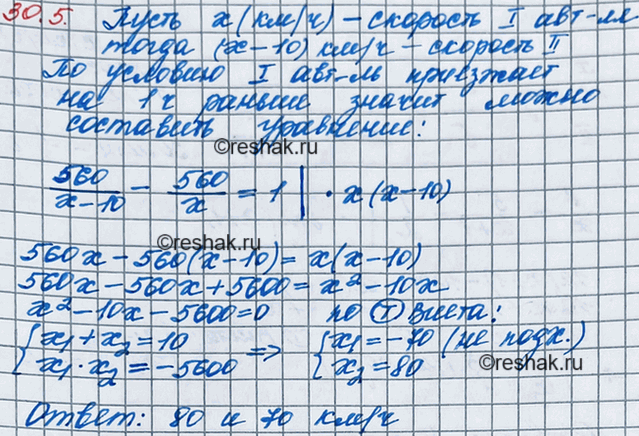 30.5. Пусть x (км/ч) – скорость I авт-ля
тогда (x–10) км/ч – скорость II
По условию I авт-ль приезжает
на 1 ч раньше значит можно
составить уравнение:
©reshak.ru
560/(x–10) – 560/x = 1 | · x(x–10)
©reshak.ru
560x – 560(x–10) = x(x–10)
560x – 560x + 5600 = x² – 10x
x² – 10x – 5600 = 0 по Т Виета:
{ x₁ + x₂ = 10 => { x₁ = –70 (не подх.)
{ x₁ · x₂ = –5600 { x₂ = 80
©reshak.ru
Ответ: 80 и 70 км/ч